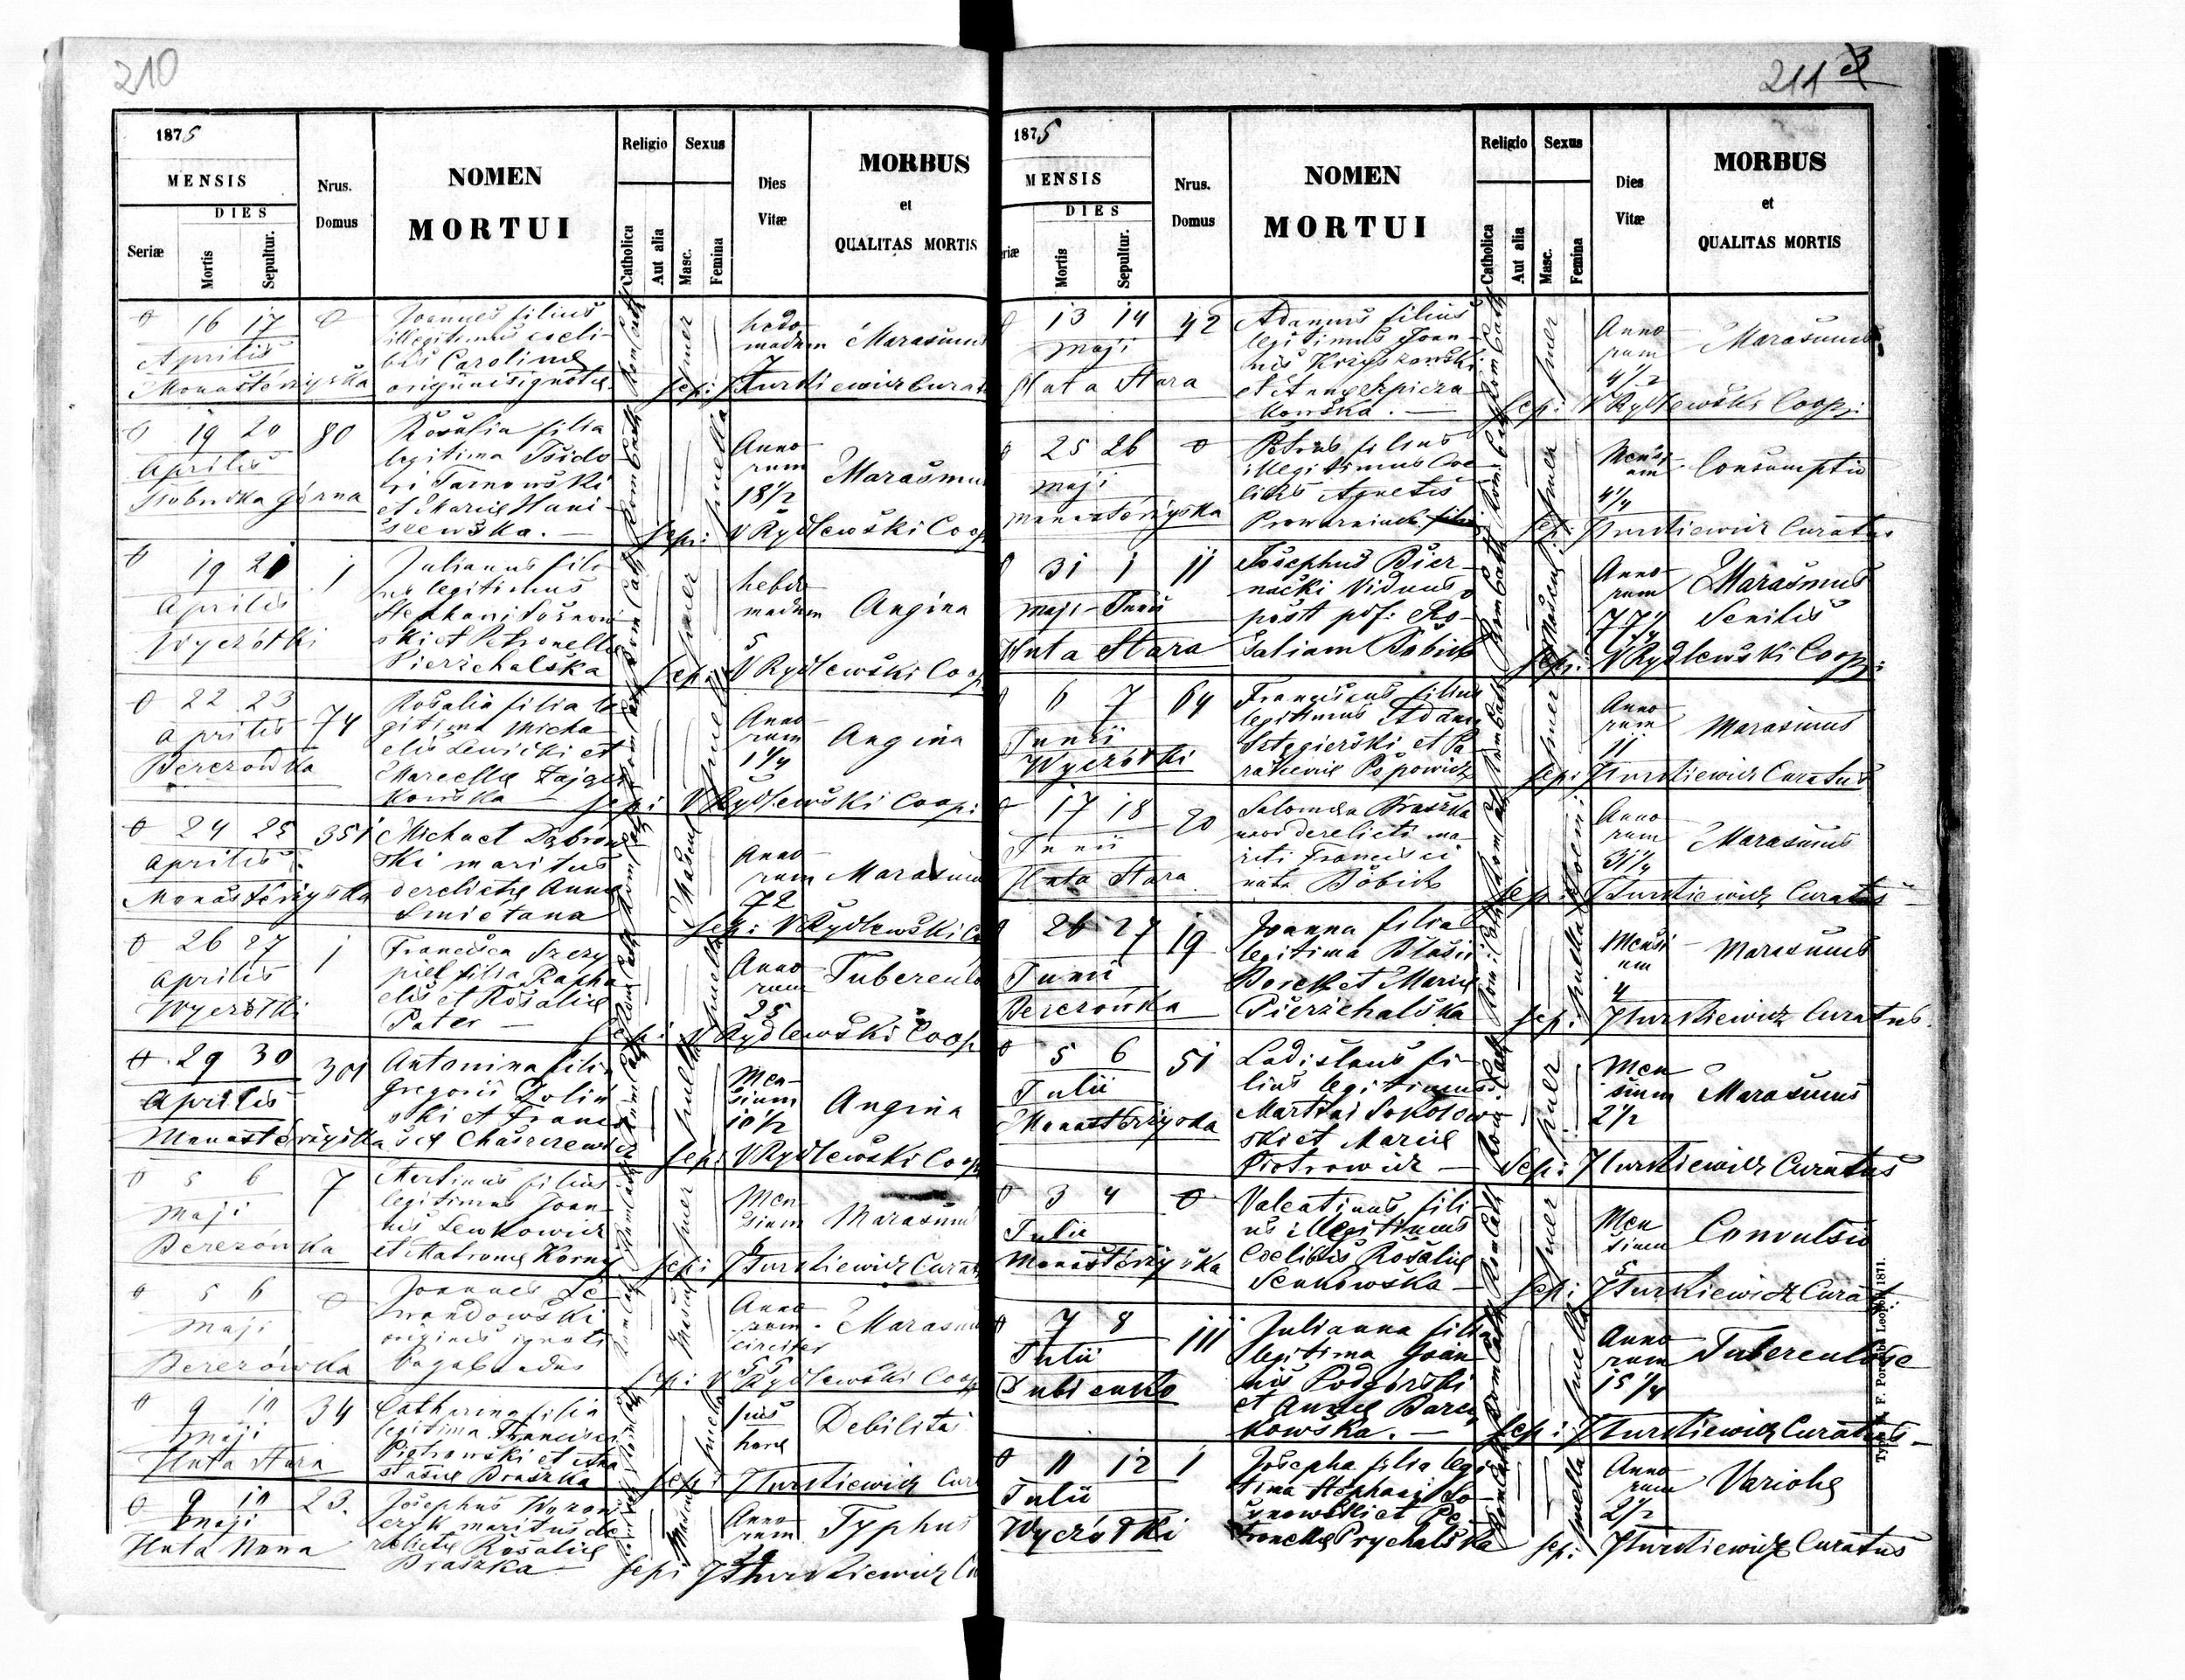 210
1875
MENSIS
DIES
Seriæ
Mortis
Sepultur.
Nrus.
Domus
NOMEN
MORTUI
Religio
Catholica
Aut alia
Sexus
Masc.
Femina
Dies
Vitæ
MORBUS
et
QUALITAS MORTIS
16 17
Aprilis
Monasterzyska
Joannes filius
illegitimus coeli-
bis Carolinæ
puer
hebdo-
madum
7
Marasmus
sep: JTurkiewicz Curat
19 20 80
Aprilis
Słobudka górna
Rosalia filia
legitima Isido
ri Tarnowski
et Mariæ Hani-
szewska. —
Rom Cath
puella
Anno-
rum
18 1/2
Marasmus
sep: VRydlewski Coop
19 21 1
Aprilis
Wyczółki
Julianus fili-
us legitimus
Stephani Sosnow
ski et Petronellæ
Pierzchalska
Rom Cath
puer
hebdo-
madum
5
Angina
sep: VRydlewski Coop
22 23 74
aprilis
Berezówka
Rosalia filia le
gitima Micha-
elis Lewicki et
Marcellæ Zajge
kowska —
puella
Anno-
rum
1 1/4
Angina
sep: VRydlewski Coop:
24 25 351
aprilis
Monasterzyska
Michael Dąbrow
ski maritus
derelictæ Annæ
Smietana
Mascul
Anno-
rum
72
Marasmus
sep: VRydlewski Co
26 27 1
aprilis
Wyczółki
Francisca Szczy
piel filia Rapha
elis et Rosaliæ
Pater —
puella
Anno
rum
25
Tuberculo
sep: VRydlewski Coop
29 30 301
Aprilis
Monasterzyska
Antonina filia
Gregorii Zoliń
ski et Franci
scæ Chaszczewicz
puella
Men-
sium
10 1/2
Angina
sep: VRydlewski Coop
5 6 7
Maji
Berezówka
Martinus filius
legitimus Joan-
nis Lewkowicz
et Matronæ Korny
puer
Men
sium
6
Marasmu
sep: JTurkiewicz Curat
5 6
Maji
Berezówka
Joannes Le
wandowski
originis ignoti
Vagabundus
Mascul
Anno-
rum
circiter
55
Marasmu
sep: VRydlewski Coop
9 10 34
maji
Huta Stara
Catharina filia
legitima Francisci
Piotrowski et Ana
stasiæ Draszka
puella
horæ
Debilitas
sep: JTurkiewicz Cura
9 10 23.
maji
Huta Nowa
Josephus Wyzow
czyk maritus de
relictæ Rosaliæ
Draszka —
Mascul
Anno
rum
Typhus
sep: JTurkiewicz Cu
211
1875
MENSIS
DIES
riæ
Mortis
Sepultur.
Nrus.
Domus
NOMEN
MORTUI
Religio
Catholica
Aut alia
Sexus
Masc.
Femina
Dies
Vitæ
MORBUS
et
QUALITAS MORTIS
13 14 42
Maji
Huta Stara
Adamus filius
legitimus Joan-
nis Krzyszowski
et Annæ Szpicza
kowska. —
Rom Cath
puer
Anno
rum
4 1/2
Marasmus
sep: VRydlewski Coop:
25 26
maji
Monasterzyska
Petrus filius
illegitimus Coe
libis Agnetis
Prowarniuk
puer
Mensi
um
4 1/4
Consumptio
sep: JTurkiewicz Curatus
31 1 11
maji - Junii
Huta Stara
Josephus Bier-
nacki Viduus
post pdf: Ro-
saliam Bobik
Rom Cath
Mascul
Anno-
rum
77 1/4
Marasmus
Senilis
sep: VRydlewski Coop:
6 7 64
Junii
Wyczółki
Franciscus filius
legitimus Adami
Sztygierski et Pa
raskeviæ Popowicz
puer
Anno
rum
11
Marasmus
sep: JTurkiewicz Curatus
17 18 20
Junii
Huta Stara
Salomea Draszka
uxor derelicti ma-
riti Francisci
nata Bobik
Foemi
Anno
rum
31 1/4
Marasmus
sep: JTurkiewicz Curatus
26 27 19
Junii
Berezówka
Joanna filia
legitima Blasii
Borek et Mariæ
Pierzchalska
Rom: Cath
puella
Mensi-
um
4
Marasmus
sep: JTurkiewicz Curatus.
5 6 51
Julii
Monasterzyska
Ladislaus fi-
lius legitimus
Martini Sokołow
ski et Mariæ
Piotrowicz —
Rom: Cath
puer
Men
sium
2 1/2
Marasmus
Sep: JTurkiewicz Curatus
3 4
Julii
Monasterzyska
Valentinus fili
us illegitimus
Coelibis Rosaliæ
Senkowska —
Rom Cath
puer
Men
sium
5
Convulsio
sep: JTurkiewicz Curat:
7 8 111
Julii
Dubienko
Julianna filia
legitima Joan
nis Podgórski
et Annæ Barcz
kowska. —
Rom Cath
puella
Anno
rum
15 1/4
Tuberculose
sep: JTurkiewicz Curatus —
11 12 1
Julii
Wyczółki
Josepha filia legi
tima Stephani So
snowski et Pe-
tronellæ Prychalska
puella
Anno
rum
2 1/2
Variolæ
sep: JTurkiewicz Curatus
1871.